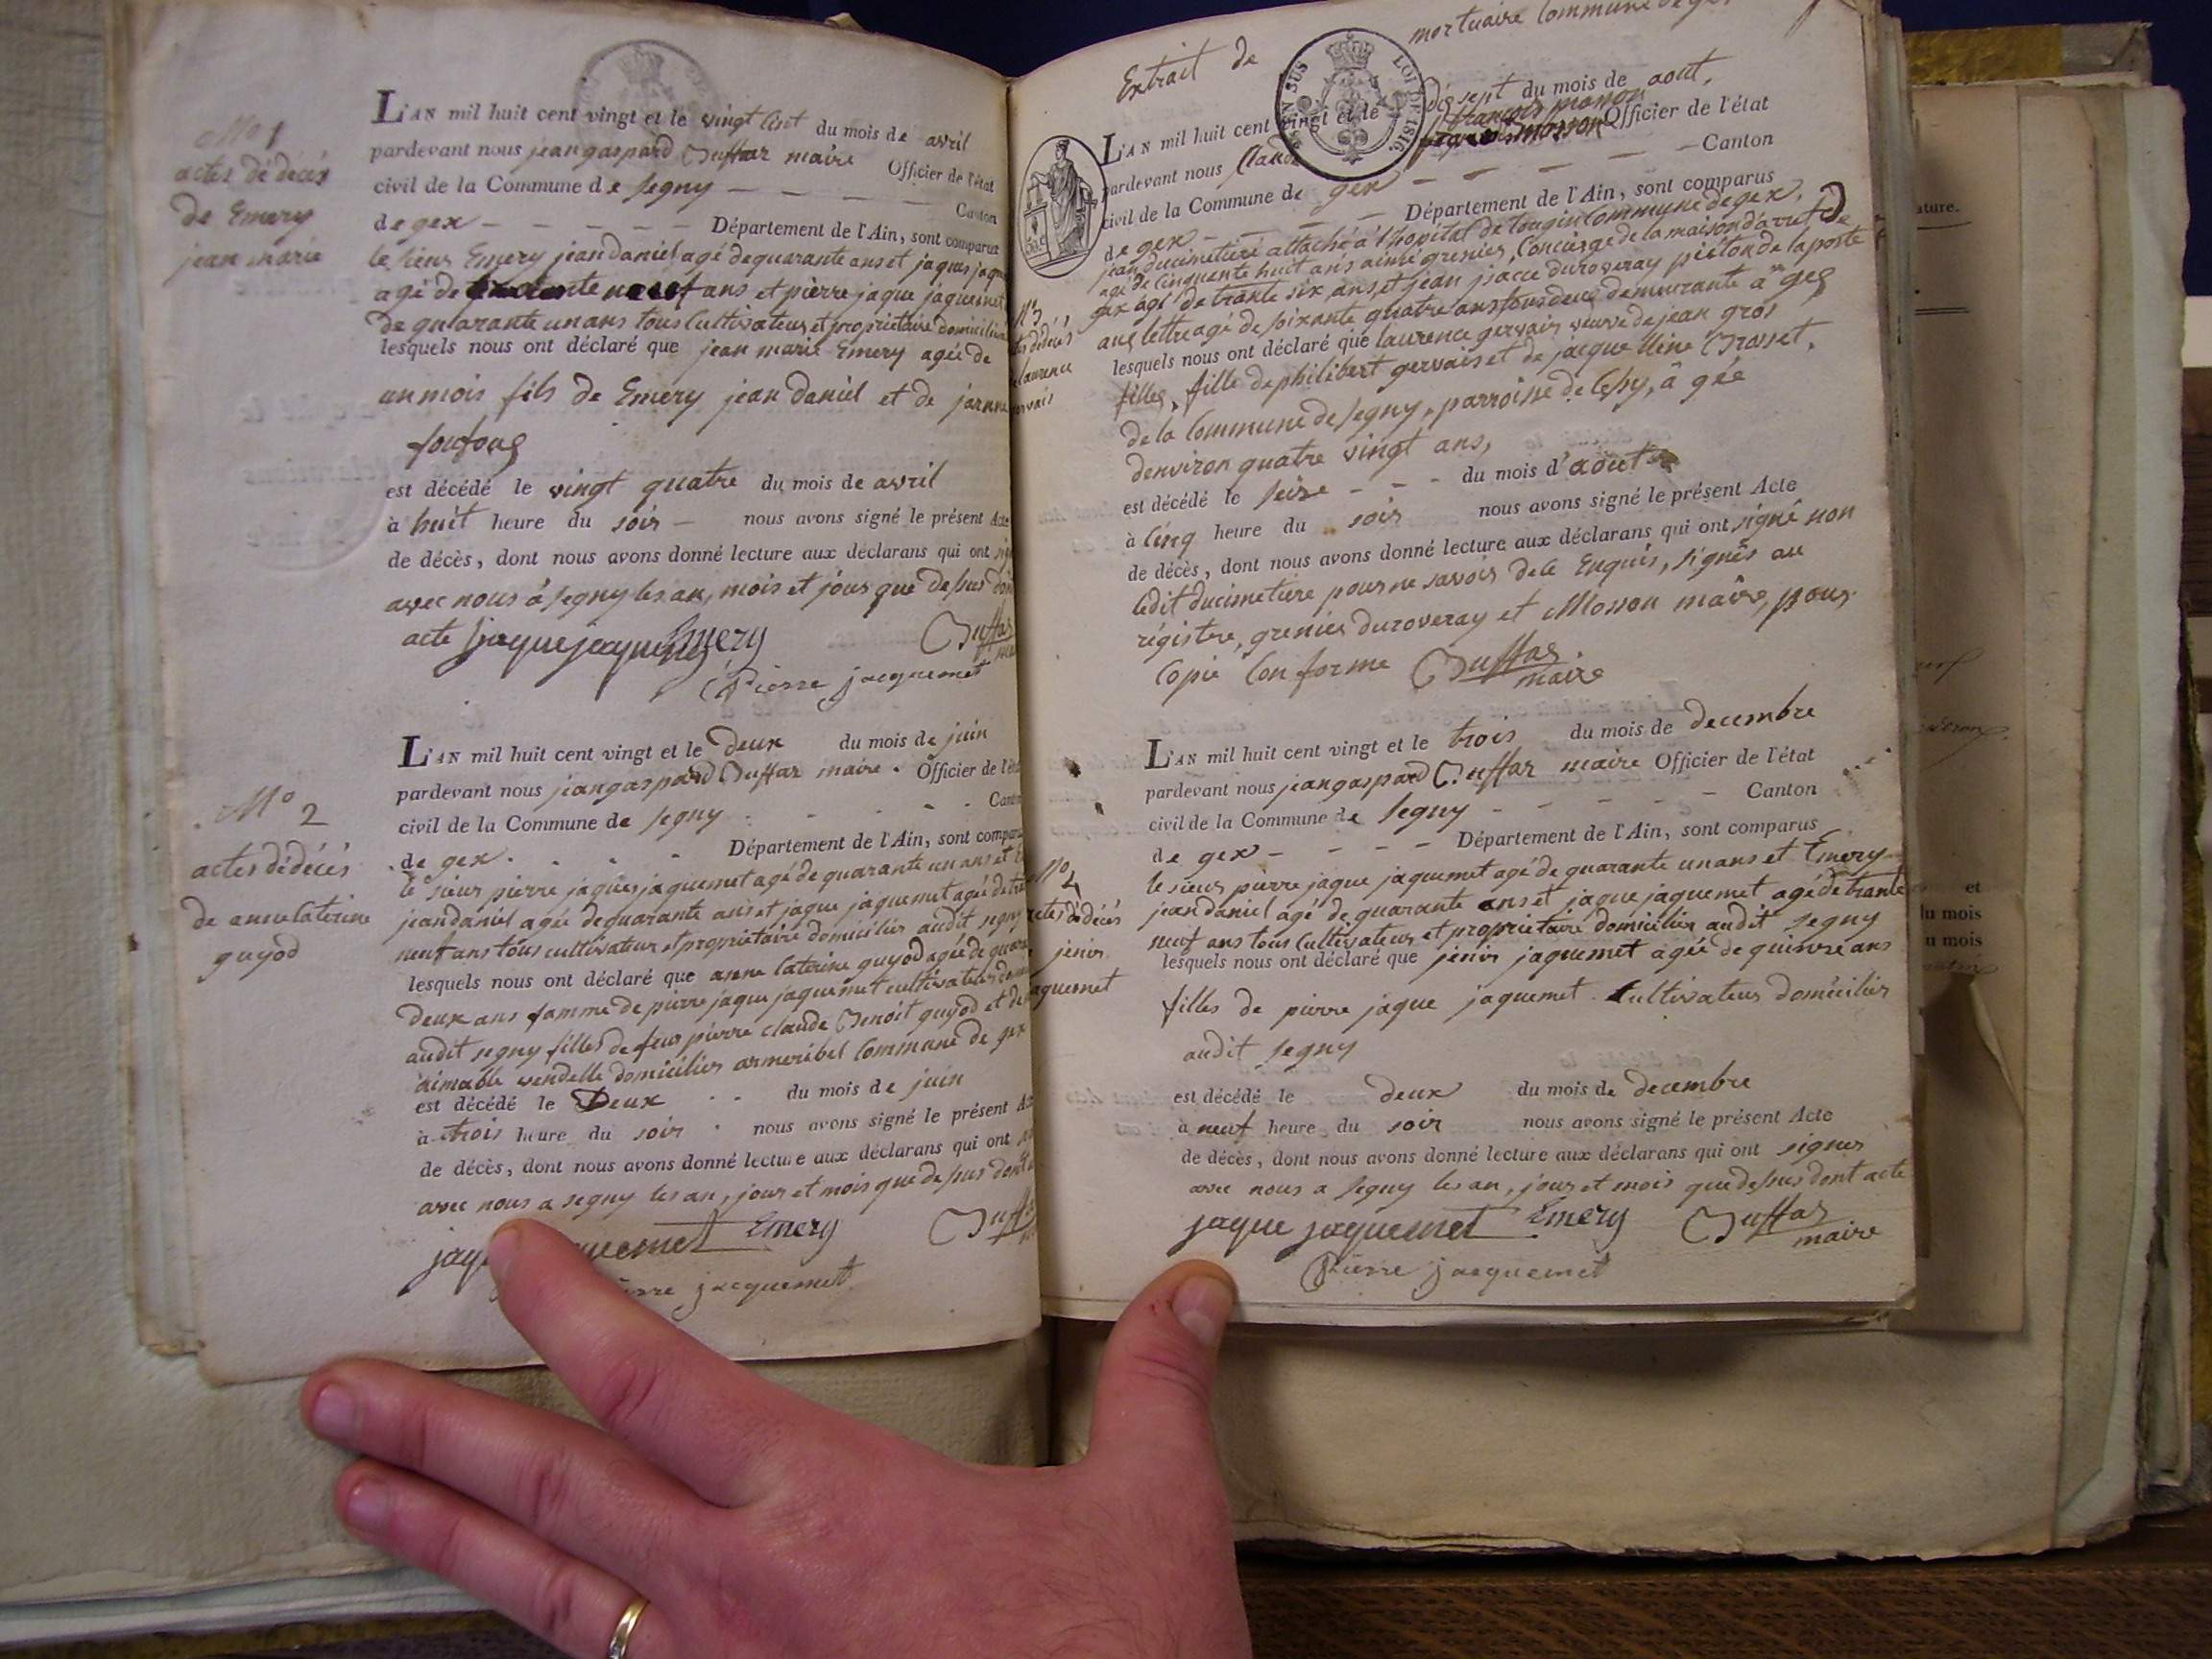 N° 1
actes dédécés
de Emery
jean marie
L'AN mil huit cent vingt et le vingt cint du mois de avril
pardevant nous jean gaspard Buffaz maire Officier de l'état
civil de la Commune de segny Canton
de gex Département de l'Ain, sont comparus
le sieur Emery jean daniel agé dequarante ans et jaques
agé de ans et pierre jaque jaquemet
de quarante un ans tous Cultivateur et propriétaire domicilier
lesquels nous ont déclaré que jean marie Emery agée de
un mois fils de Emery jean daniel et de
est décédé le vingt quatre du mois de avril
à huit heure du soir nous avons signé le présent Acte
de décès, dont nous avons donné lecture aux déclarans qui ont
avec nous à segny les an, mois et jours que dessus
acte jaque Emery Buffaz
Pierre jacquemet
N° 2
actes dédécés
de anne laterine
guyod
L'AN mil huit cent vingt et le deux du mois de juin
pardevant nous jean gaspard Buffaz maire Officier de l'état
civil de la Commune de segny Canton
de gex Département de l'Ain, sont comparus
le sieur pierre jaques jaquemet agé de quarante un ans et
jean daniel agée dequarante ans et jaque jaquemet agée de
neuf ans tous cultivateur et propriétaire domicilier audit segny
lesquels nous ont déclaré que anne laterine guyod agée de
deux ans famme de pierre jaque jaquemet cultivateur
audit segny filles de feus pierre claude Benoit guyod et de
aimable domicilier Commune de gex
est décédé le Deux du mois de juin
à trois heure du soir nous avons signé le présent
de décès, dont nous avons donné lecture aux déclarans qui ont
avec nous a segny les an, jour et mois que dessus dont
Emery Buffaz
jacquemet
Extrait de mortuaire Commune de
L'AN mil huit cent vingt et le dix sept du mois de aout,
pardevant nous françois Mosson Officier de l'état
civil de la Commune de gex Canton
de gex Département de l'Ain, sont comparus
jean ducimetiere attaché a l'hopital de tougin Commune de gex,
agé de Cinquente huit ans aimé grenier, Concierge de la maison d'arret de
gex agé de trante six ans, et jean duroveray piéton de la poste
aux lettre agé de soixante quatre ans tous deux demeurante a gex
lesquels nous ont déclaré que laurence gervais veuve de jean gros
filles, fille de philibert gervais et de jacque
de la Commune de segny, parroisse de Cessy, â gée
denviron quatre vingt ans,
est décédé le seize du mois d'aout
à Cinq heure du soir nous avons signé le présent Acte
de décès, dont nous avons donné lecture aux déclarans qui ont signé non
ledit ducimetiere pour ne savoir de ce Enquis, signés au
régistre, grenier duroveray et Mosson maire, pour
Copie Conforme Buffaz
maire
L'AN mil huit cent vingt et le trois du mois de decembre
pardevant nous jean gaspard Buffaz maire Officier de l'état
civil de la Commune de segny Canton
de gex Département de l'Ain, sont comparus
le sieur pierre jaque jaquemet agé de quarante un ans et Emery
jean daniel agé de quarante ans et jaque jaquemet agé de trante
neuf ans tous Cultivateur et propriétaire domicilier audit segny
lesquels nous ont déclaré que jenis jaquemet agée de quinze ans
filles de pierre jaque jaquemet Cultivateur domicilier
audit segny
est décédé le deux du mois de decembre
à neuf heure du soir nous avons signé le présent Acte
de décès, dont nous avons donné lecture aux déclarans qui ont signer
avec nous a segny les an, jour et mois que dessus dont acte
jaque jaquemet Emery Buffaz
maire
Pierre jacquemet